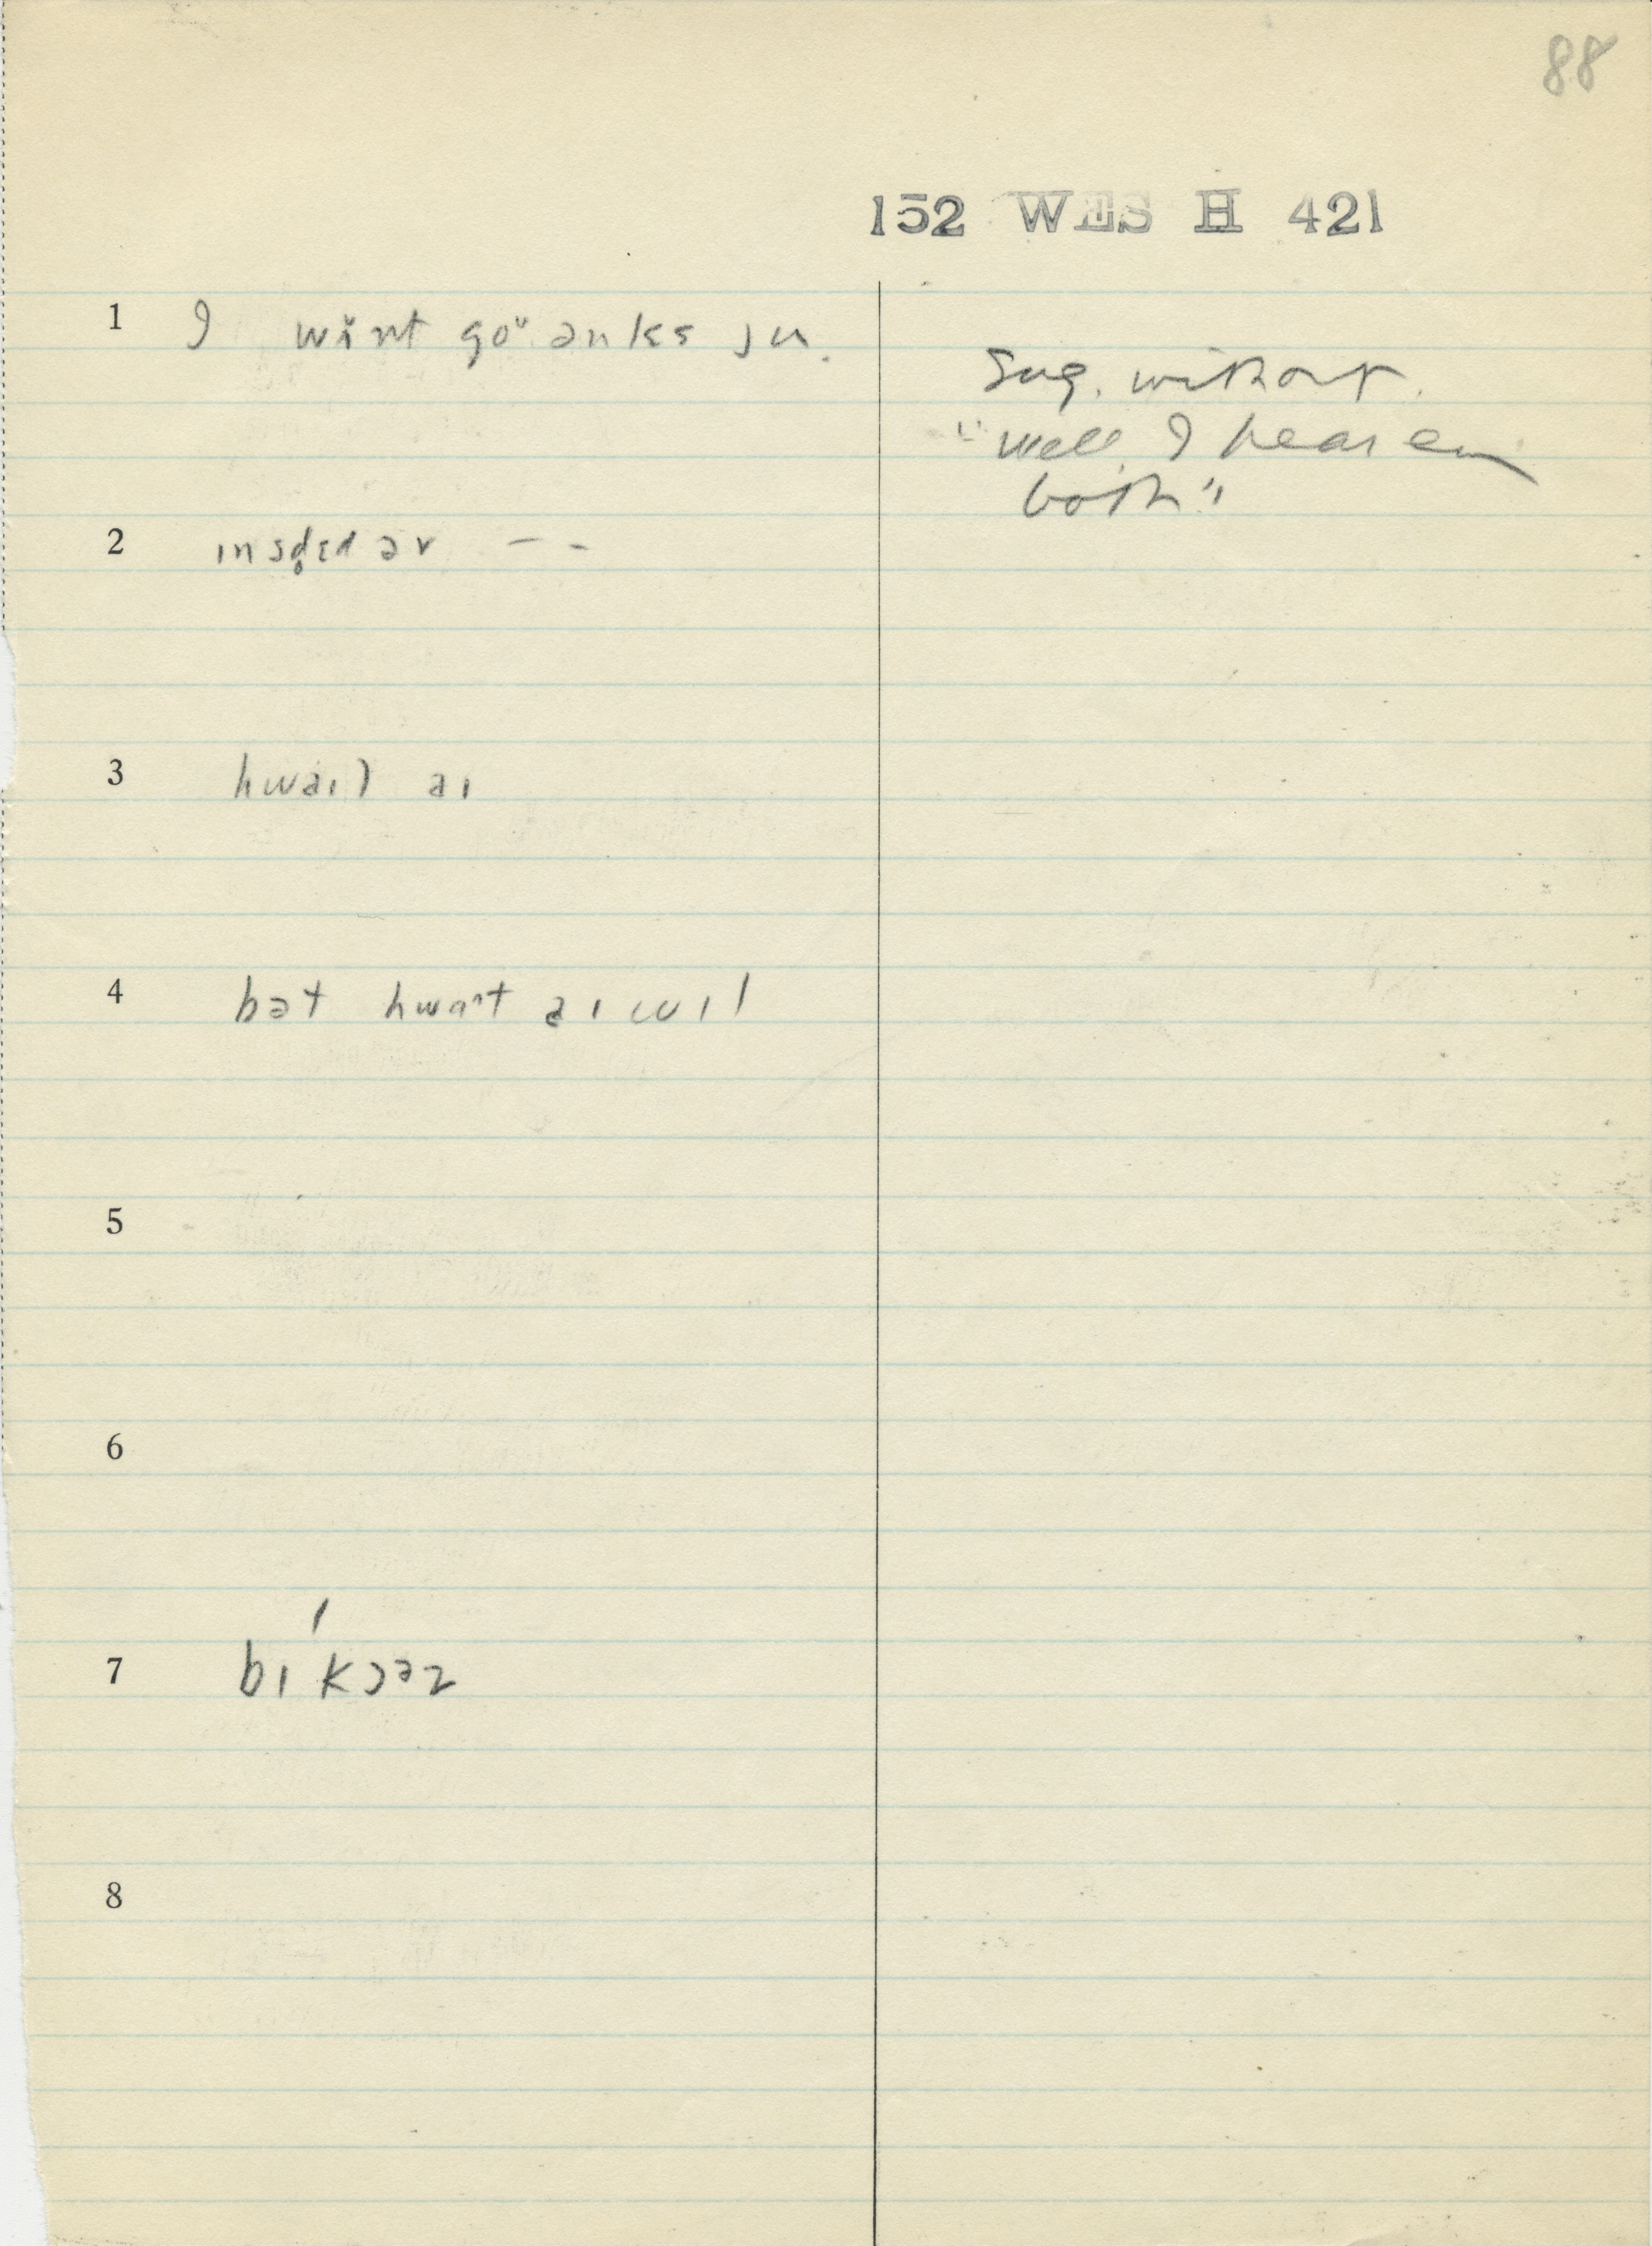 88
152 WES H 421
1 I wɨnt goᵘ ənlɛs ju.
Sug. without.
"Well, I hear em
both"
2 ınstɛd əv – –
3 hwaıl aı
4 bət hwɑt aı wıl
5
6
7 bı'kɔəz
8